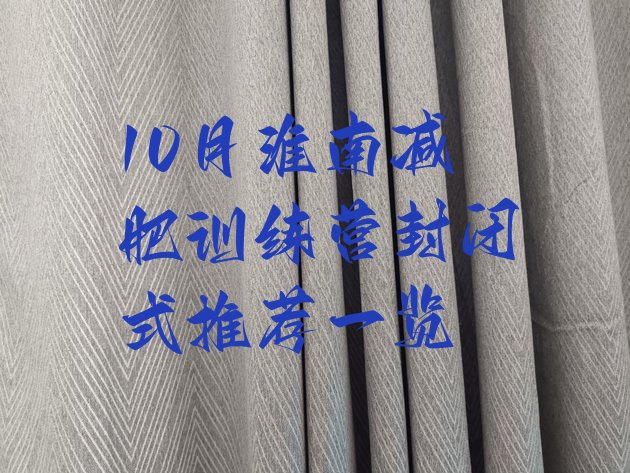 10月淮南减
肥训练营封闭
式推荐一览